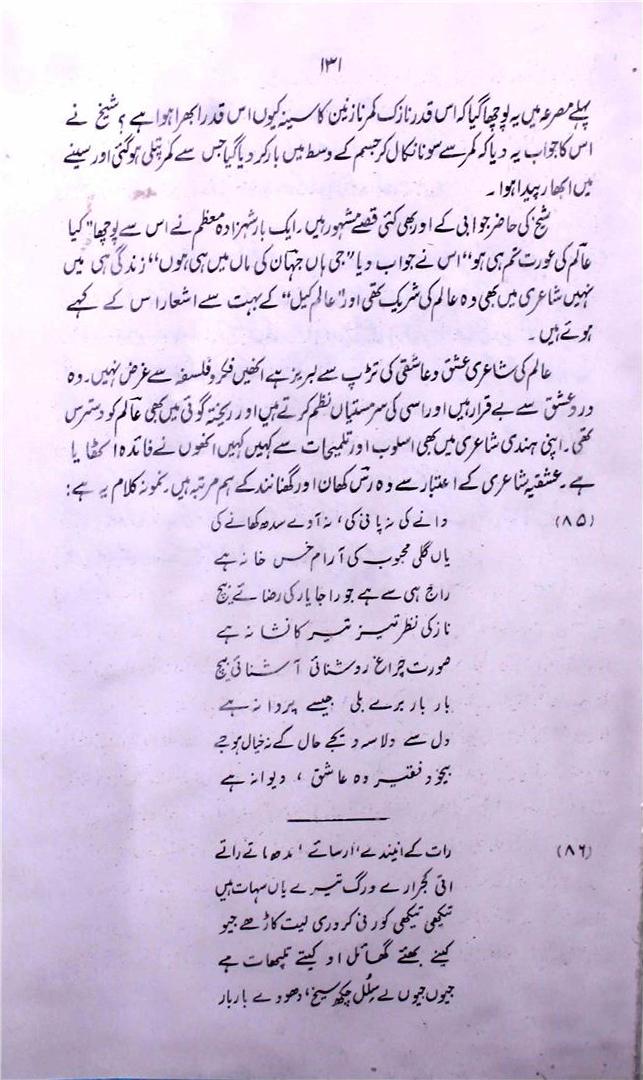 ۱۳۱
پہلے مصرعہ میں یہ پوچھا گیا کہ اس قدر نازک کمر نازنین کا سینہ کیوں اس قدر ابھرا ہوا ہے؟ شیخ نے
اس کا جواب یہ دیا کہ کمر سے سونا نکال کر جسم کے وسط میں بار کر دیا گیا جس سے کمر پتلی ہوگئی اور سینے
میں ابھار پیدا ہوا۔
شیخ کی حاضر جوابی کے اور بھی کئی قصے مشہور ہیں۔ ایک بار شہزادہ معظم نے اس سے پوچھا "کیا
عالم کی عورت تم ہی ہو" اس نے جواب دیا "جی ہاں جہان کی ماں میں ہی ہوں" زندگی ہی میں
نہیں شاعری میں بھی وہ عالم کی شریک تھی اور "عالم کیل" کے بہت سے اشعار اس کے کہے
ہوئے ہیں۔
عالم کی شاعری عشق و عاشقی کی تڑپ سے لبریز ہے انھیں فکر و فلسفہ سے غرض نہیں۔ وہ
درد عشق سے بے قرار ہیں اور اسی کی سرمستیاں نظم کرتے ہیں اور ریختہ گوئی میں بھی عالم کو دسترس
تھی۔ اپنی ہندی شاعری میں بھی اسلوب اور تلمیحات سے کہیں کہیں انھوں نے فائدہ اٹھایا
ہے۔ عشقیہ شاعری کے اعتبار سے وہ رس کھان اور گھنانند کے ہم مرتبہ ہیں۔ نمونہ کلام یہ ہے:
(۸۵) دانے کی نہ پانی کی، نہ آوے سدھ کھانے کی
یاں گلی محبوب کی آرام خس خانہ ہے
راج ہی سے ہے جو راجا یار کی رضائے بیچ
ناز کی نظر تیز تیر کا نشانہ ہے
صورت چراغ روشنائی آشنائی بیچ
بار بار برے بلی جیسے پروانہ ہے
دل سے دلاسہ دیجے حال کے نہ خیال ہوجے
بیخود فقیر وہ عاشق، دیوانہ ہے
(۸۶) رات کے انیندے، ارساتے، مدھ ماتے راتے
اتی کجرارے درگ تیرے یاں سہات ہیں
تیکھی تیکھی کورنی کروری لیت کاڑھے جیو
کیتے بھئے گھائل او کیتے تلپھات ہے
جیوں جیوں لے سلل چکھ سیخ، دھووے بار بار